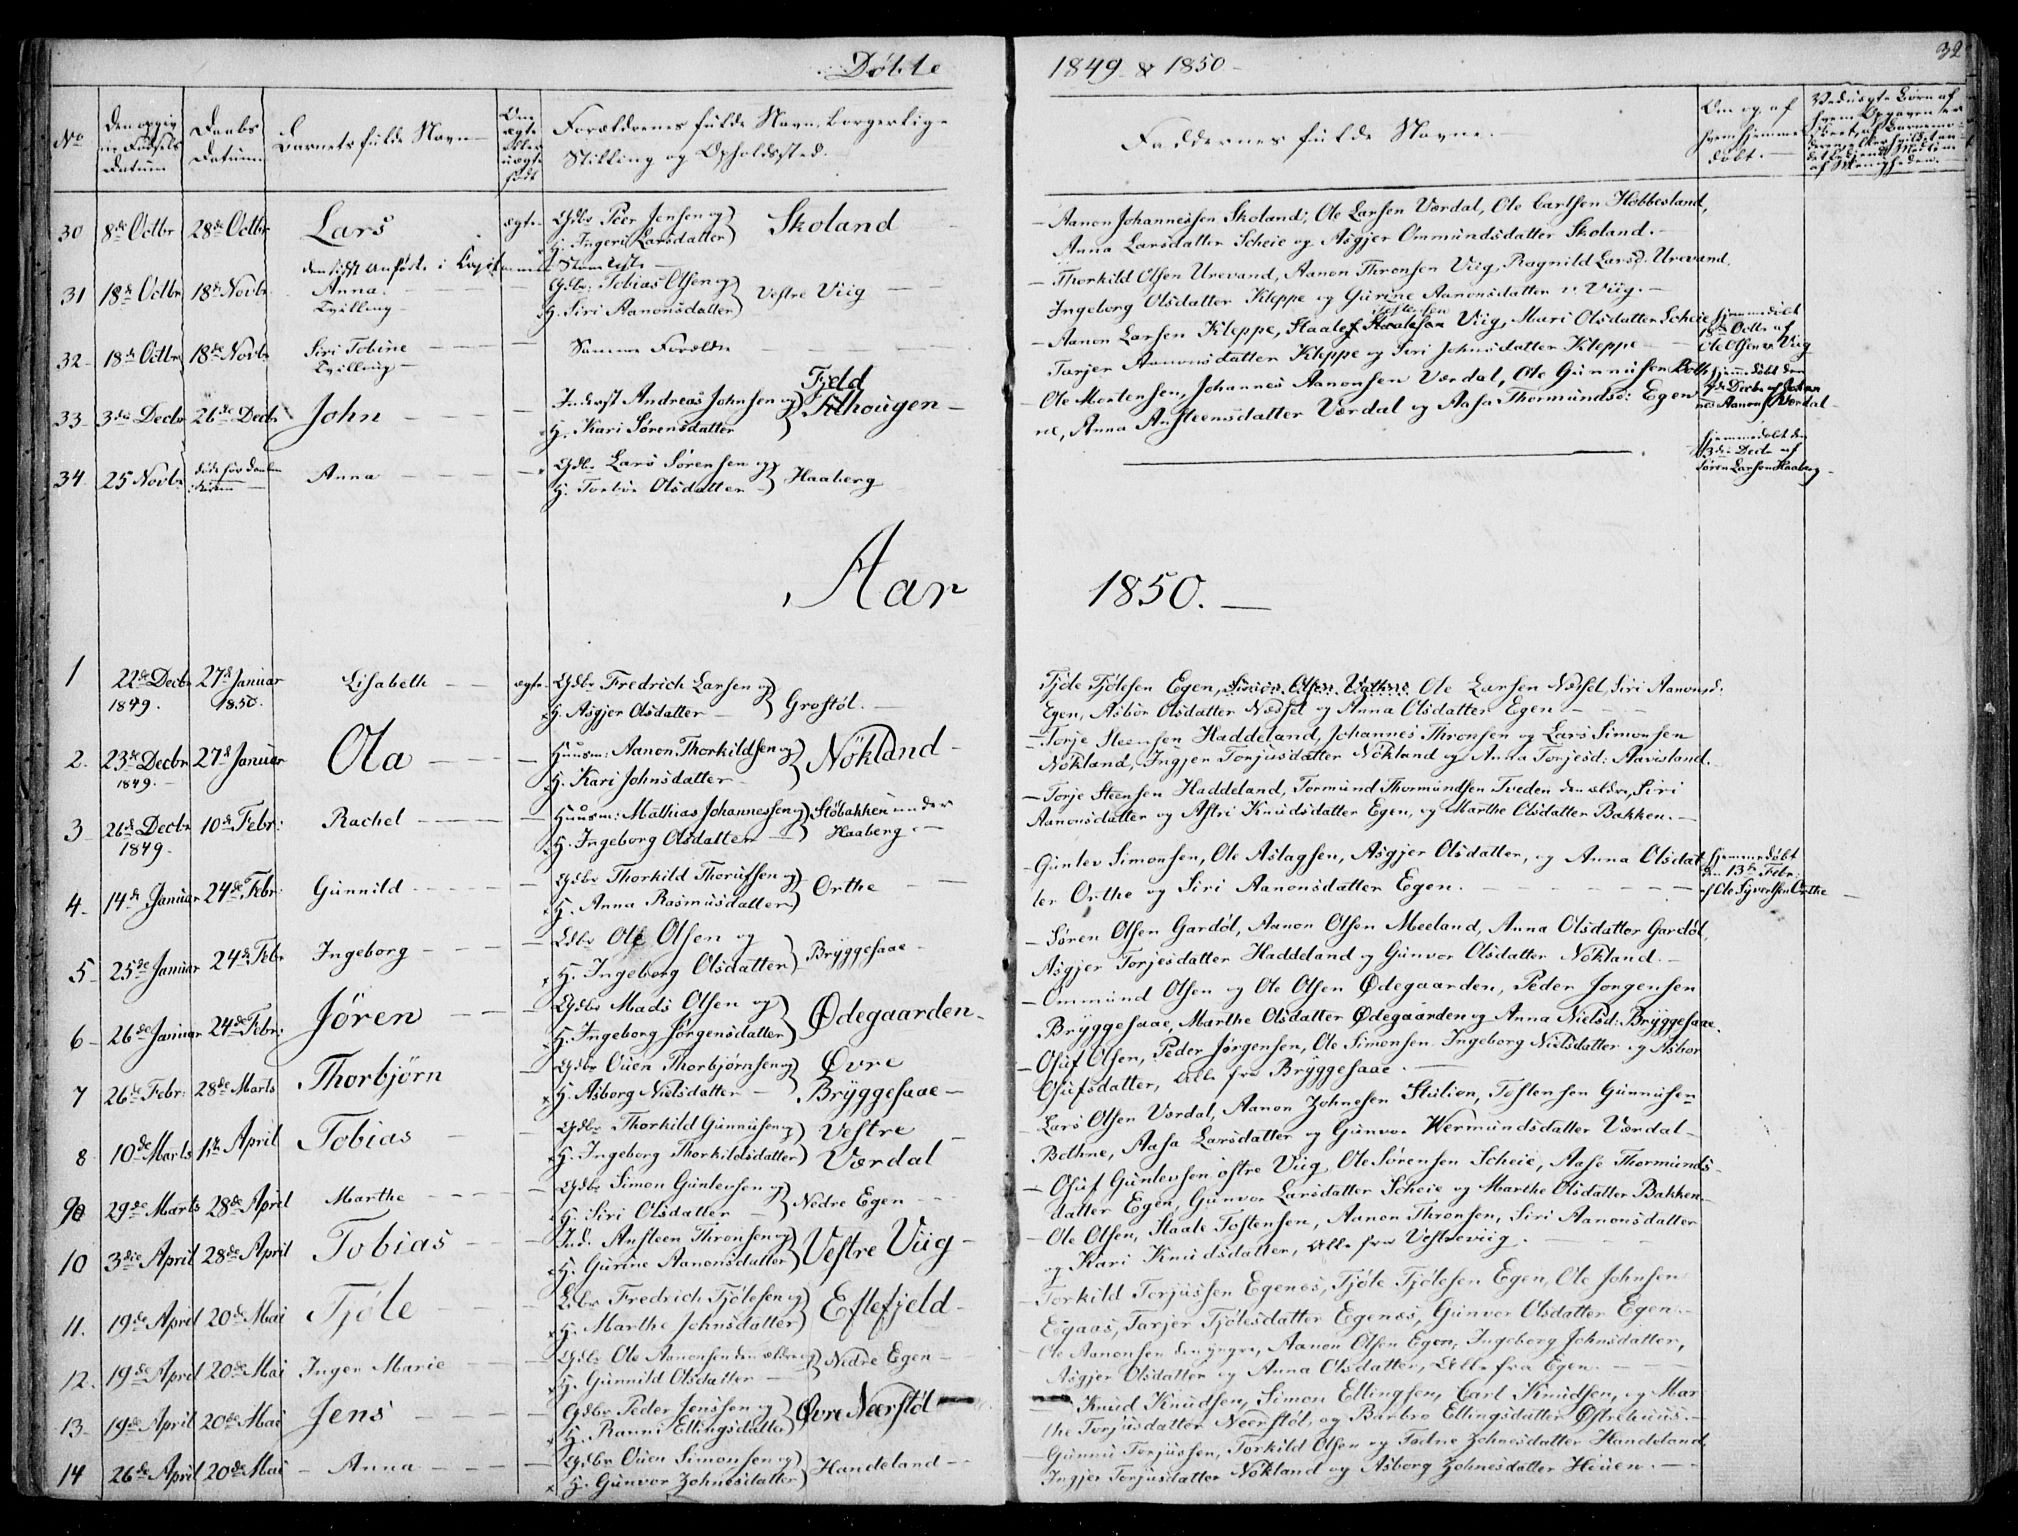 Döbte 1849 & 1850
32
No
Den opgivne Födsels Datum
Daabs Datum
Barnets fulde Navn
Om ægte eller uægte født
Forældrenes fulde Navn, borgerlige Stilling og Opholdssted.
Faddernes fulde Navne.
Om og af hvem hjemmedøbt.
30 8de Octbr 28de Octbr Lars ægte Gdbr Peer Jensen og H. Ingeri Larsdatter Skoland
Aanon Johannessen Skoland, Ole Larsen Værdal, Ole Carlsen Höbbesland,
Anna Larsdatter Scheie og Asgjer Ommundsdatter Skoland.
31 18de Octbr 18de Novbr Anna Tvilling Gdbr: Tobias Olsen og H. Siri Aanonsdatter Vestre Viig
Thorkild Olsen Urevand, Aanon Thronsen Viig, Ragnild Larsd. Urevand,
Ingeborg Olsdatter Kleppe og Gurine Aanonsdatter v. Viig.
32 18de Octbr 18de Novbr Siri Tobine Tvilling Samme Forældre
Aanon Larsen Kleppe, Staale Tostensen Viig, Mari Olsdatter Scheie
Tarjer Aanonsdatter Kleppe og Siri Johnsdatter Kleppe
hjemmedöbt 18de Octbr af Ole Olsen v. Viig
33 3die Decbr 26de Decbr John Inderst Andreas Johnsen og H. Kari Sörensdatter Fjeld
Ole Mortensen, Johannes Aanonsen Værdal, Ole Gunnusen Both
ne, Anna Ansteensdatter Værdal og Aasa Thormundsd: Egen
hjemmedöbt den Decbr af Johannes Aanonsen Værdal
34 25 Novbr döde för Daaben Anna Gdbr Lars Sörensen og H. Torbor Olsdatter Haaberg
hjemmedöbt den 3die Decbr af Sören Larsen Haaberg
Aar 1850.
1 22de Decbr 1849. 27de Januar 1850. Lisabeth ægte Gdbr Fredrich Larsen og H. Asgjer Olsdatter Grostöl.
Tjöle Tjölesen Egen, Ole Larsen Nædsel, Siri Aanonsd:
Egen, Asbor Olsdatter Nædsel og Anna Olsdatter Egen
2. 23de Decbr 1849. 27de Januar Ola Huusm: Aanon Thorkildsen og H. Kari Johnsdatter Nökland
Torje Steensen Haddeland, Johannes Thronsen og Lars Simonsen
Nökland, Ingjer Torjusdatter Nökland og Anna Torjesd: Aavesland.
3 26de Decbr 1849. 10de Febr: Rachel Huusm: Mathias Johannessen og H. Ingeborg Olsdatter Stöbakken under Haaberg
Torje Steensen Haddeland, Tormund Thormundsen Tveden den ældre, Siri
Aanonsdatter og Astri Knudsdatter Egen, og Marthe Olsdatter Bakken.
4 14de Januar 24de Febr: Gunnild Gdbr Thorkild Thorufsen og H. Anna Rasmusdatter Orthe
Gunlev Simonsen, Ole Aslagsen, Asgjer Olsdatter, og Anna Olsdat
ter Orthe og Siri Aanonsdatter Egen.
hjemmedöbt den 13de Febr: af Ole Syvertsen Orthe
5 25de Januar 24de Febr Ingeborg Gdbr Ole Olsen og H. Ingeborg Olsdatter Bryggesaae
Sören Olsen Gardöl, Aanon Olsen Meeland, Anna Olsdatter Gardöl,
Asgjer Torjesdatter Haddeland og Gunvor Olsdatter Nökland.
6 26de Januar 24de Febr: Jören Gdbr Mads Olsen og H. Ingeborg Jörgensdatter Ødegaarden
Ommund Olsen og Ole Olsen Ødegaarden, Peder Jorgensen
Bryggesaae, Marthe Olsdatter Ødegaarden og Anna Nielsd: Bryggesaae.
7 26de Febr: 28de Marts Thorbjörn Gdbr Ouen Thorbjörnsen og H. Asborg Nielsdatter Øvre Bryggesaae
Osuf Olsen, Peder Jörgensen, Ole Simonsen Ingeborg Nielsdatter og Asbor
Osufsdatter, Alle fra Bryggesaae.
8 10de Marts 1ste April Tobias Gdbr Thorkild Gunnusen og H. Ingeborg Thorkildsdatter Vestre Værdal
Lars Olsen Værdal, Aanon Johnesen Stulien, Tostensen Gunnusen
Bothne, Aasa Larsdatter og Gunvor Wermundsdatter Værdal
9 29de Marts 28de April Marthe Gdbr Simon Gunlevsen og H. Siri Olsdatter Nedre Egen
Osuf Gunlevsen östre Viig, Ole Sörensen Scheie, Aase Thormunds
datter Egen, Gunvor Larsdatter Scheie og Marthe Olsdatter Bakken
10 3die April 28de April Tobias Ind. Ansteen Thronsen og H. Gurine Aanonsdatter Vestre Viig
Ole Olsen, Staale Tostensen, Aanon Thronsen, Siri Aanonsdatter
og Kari Knudsdatter, Alle fra Vestreviig.
11. 19de April 20de Mai Tjöle Gdbr Fredrich Tjölesen og H. Marthe Johnsdatter Eftefjeld
Torkild Torjussen Egenes, Tjöle Tjölesen Egen, Ole Johnsen
Egaas, Tarjer Tjölesdatter Egenes, Gunvor Olsdatter Egen.
12. 19de April 20de Mai Inger Marie Gdbr Ole Aanonsen den ældre og H. Gunnild Olsdatter Nedre Egen
Ole Aanonsen den yngre, Aanon Olsen Egen, Ingeborg Johnsdatter,
Asgjer Olsdatter og Anna Olsdatter, Alle fra Egen.
13. 19de April 20de Mai Jens Gdbr Peder Jenssen og H. Ranni Ellingsdatter Øvre Neerstöl
Knud Knudsen, Simon Ellingsen, Carl Knudsen, og Mar
the Torjusdatter Neerstöl, og Barbro Ellingsdatter Østrehuus.
14 26de April 20de Mai Anna Gdbr Ouen Simonsen og H. Gunvor Johnesdatter Handeland
Gunnu Torjussen, Torkild Olsen og Todne Johnesdatter Handeland,
Ingjer Torjusdatter Nökland og Asborg Johnesdatter Heuen.